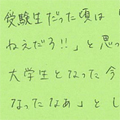 受験生だった頃は
ねえだろ!!」と思っ
大学生となった今
なったなぁ」とし